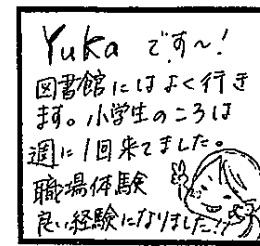 Yukaです〜!
図書館にはよく行き
ます。小学生のころは
週に1回来てました。
職場体験
良い経験になりました!!